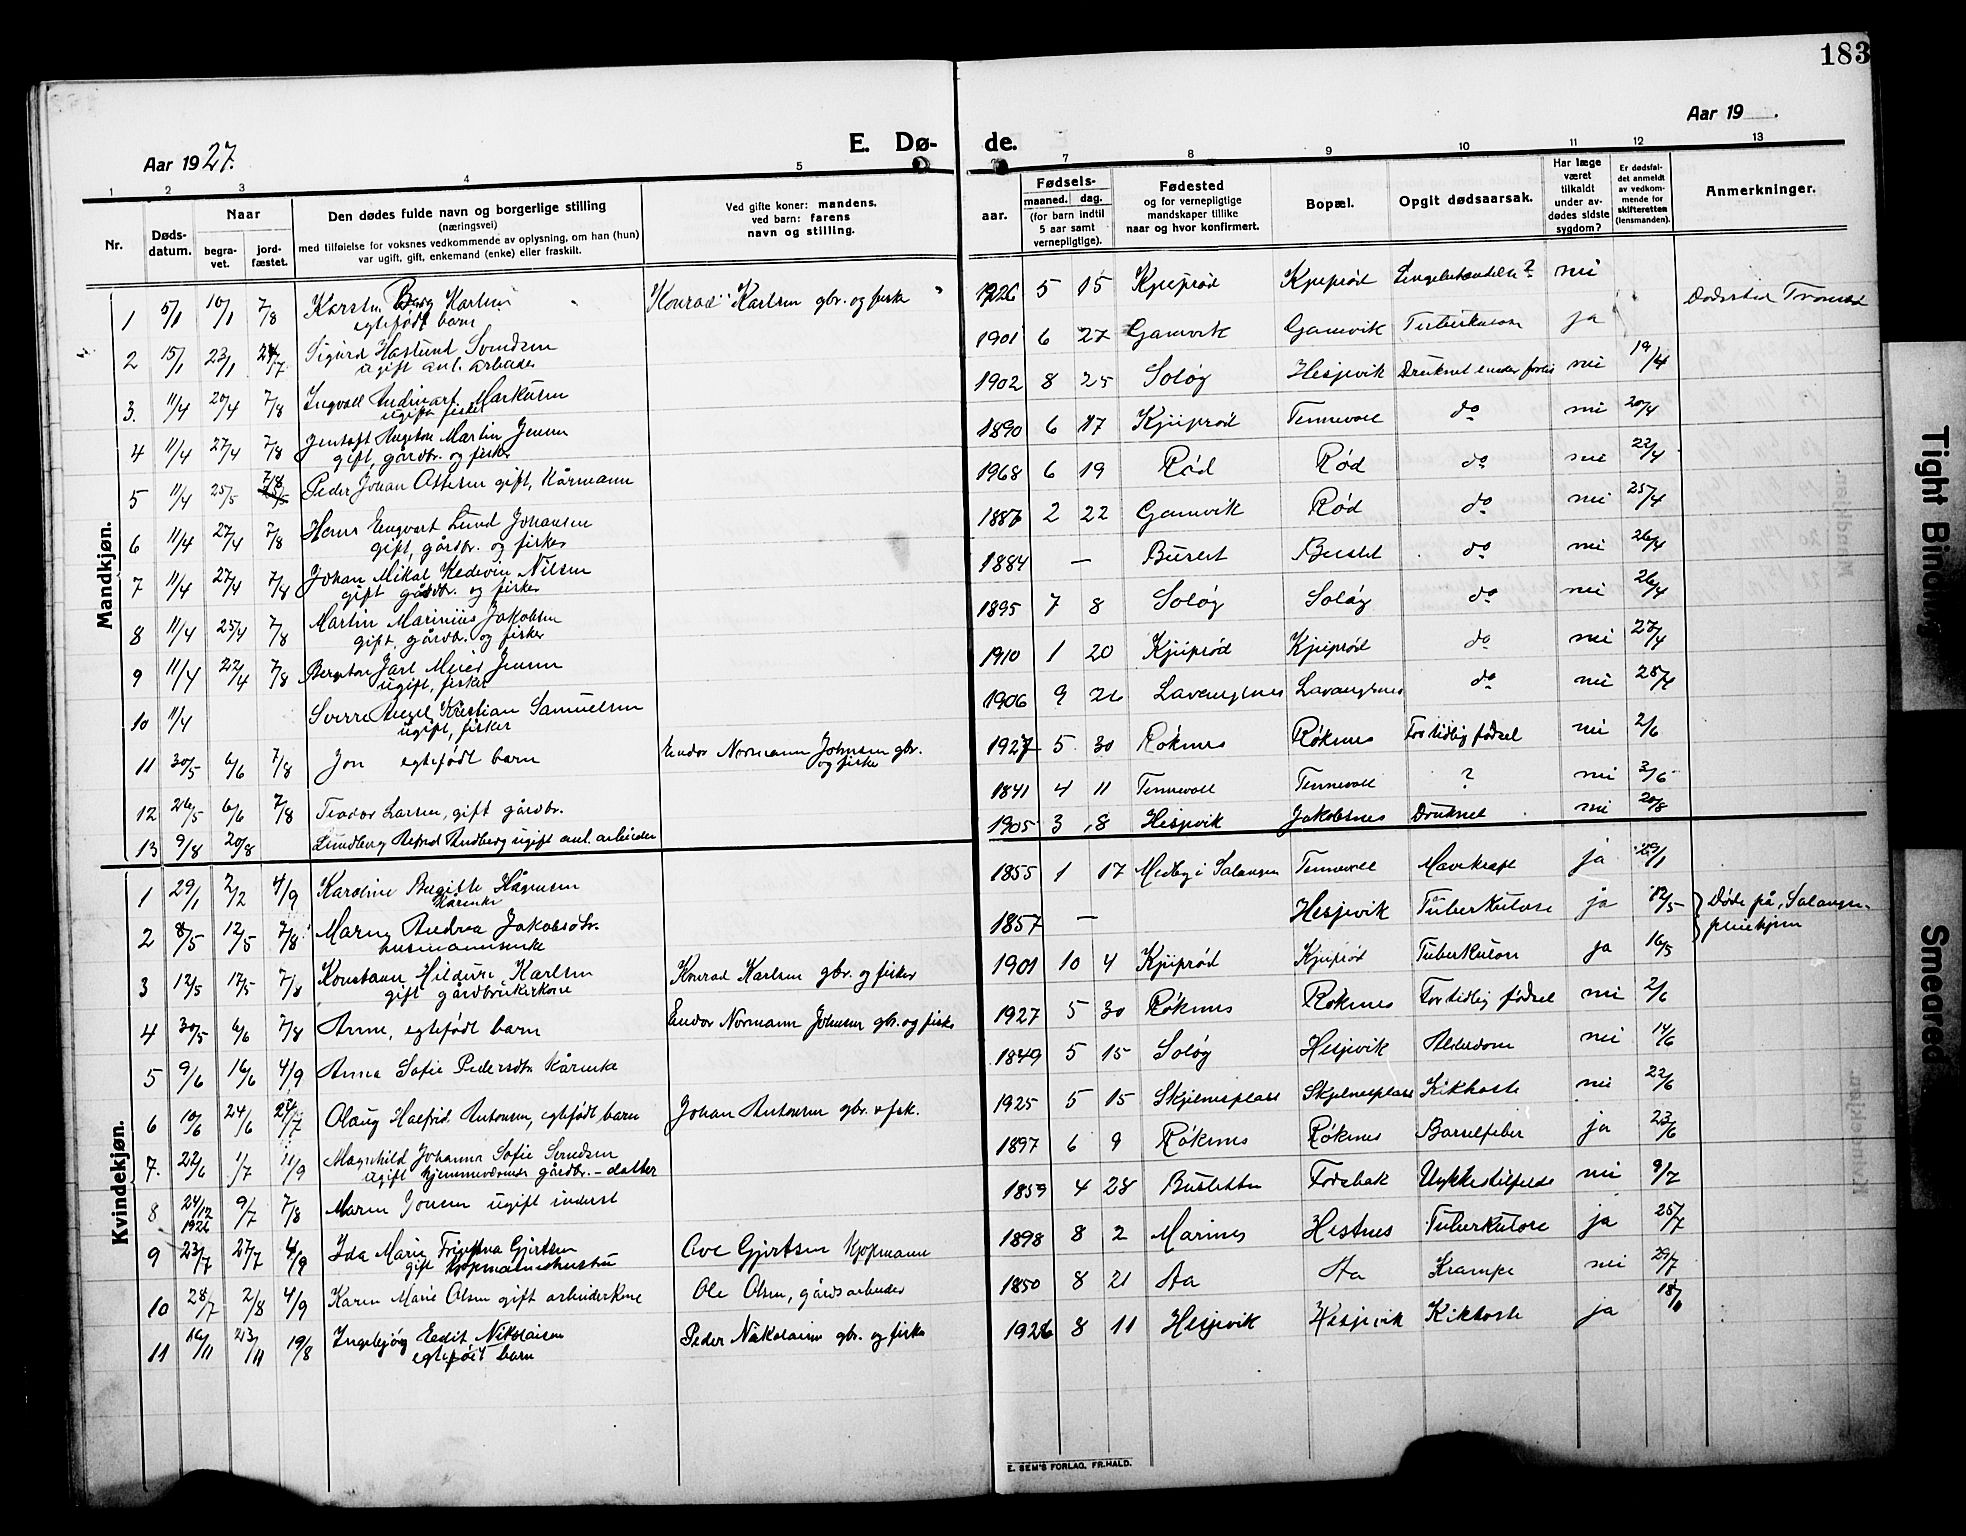 183
Aar 1927.
E. Dø-
de.
Aar 19 .
1 2 3 4 5 7 8 9 10 11 12 13
Nr.
Døds-
datum.
Naar
begra-
vet.
jord-
fæstet.
Den dødes fulde navn og borgerlige stilling
(næringsvei)
med tilføielse for voksnes vedkommende av oplysning, om han (hun)
var ugift, gift, enkemand (enke) eller fraskilt.
Ved gifte koner: mandens.
ved barn: farens
navn og stilling.
aar.
Fødsels-
maaned. dag.
(for barn indtil
5 aar samt
vernepligtige).
Fødested
og for vernepligtige
mandskaper tillike
naar og hvor konfirmert.
Bopæl.
Opgit dødsaarsak.
Har læge
været
tilkaldt
under av-
dødes sidste
sygdom?
Er dødsfal-
det anmeldt
av vedkom-
mende for
skifteretten
(lensmanden).
Anmerkninger.
Mandkjøn.
1 5/1 10/1 7/8 Karsten Berg Karlsen Konrad Karlsen gbr. og fisker 1926 5 15 Kjeiprød Kjeiprød nei
egtefødt barn
2 15/1 23/1 24/7 Sigurd Haslund Svendsen 1901 6 27 Gamvik Gamvik Tuberkulose ja Dødssted Tromsø
ugift anl. arbeider
3. 11/4 20/4 7/8 Ingvall Markusen 1902 8 25 Soløy Hesjevik Druknet under forlis nei 19/4
ugift fisker
4 11/4 27/4 7/8 Jentoft Angeton Martin Jensen 1890 6 17 Kjeiprød Tennevoll do nei 20/4
gift, gårdbr. og fisker
5 11/4 25/5 7/8 Peder Johan Ottesen gift, Kårmann 1968 6 19 Rød Rød do nei 22/4
6 11/4 27/4 7/8 Hans Engvart Lund Johansen 1886 2 22 Gamvik Rød do nei 25/4
gift, gårdbr. og fisker
7 11/4 27/4 7/8 Johan Mikal Hedevin Nilsen 1884 — Buslet Buslet do nei 26/4
gift gårdbr. og fisker
8 11/4 25/4 7/8 Martin Marinius Jakobsen 1895 7 8 Soløy Soløy do nei 26/4
gift, gårdbr. og fisker
9 11/4 22/4 7/8 Bergton Jarl Meier Jensen 1910 1 20 Kjeiprød Kjeiprød do nei 27/4
ugift, fisker
10 11/4 Sverre Angel Kristian Samuelsen 1906 9 26 Lavangsnes Lavangsnes do nei 25/4
ugift, fisker
11 30/5 6/6 7/8 Jon egtefødt barn Endor Normann Johnsen gbr. 1927 5 30 Røknes Røknes For tidlig fødsel nei 2/6
og fisker
12 26/5 6/6 7/8 Teodor Larsen, gift gårdbr. 1841 4 11 Tennevoll Tennevoll ? nei 3/6
13 9/8 20/8 Lundberg Alfred Lundberg ugift anl. arbeider 1905 3 8 Hesjevik Jakobsnes Druknet nei 20/8
Kvindekjøn.
1 29/1 2/2 4/9 Karoline Bergitte Hågensen 1855 1 17 Medby i Salangen Tennevoll Mavekræft ja 29/1
Kårenke
2 8/5 12/5 7/8 Maren Andrea Jakobsdtr. 1857 — Hesjevik Tuberkulose ja 12/5 Døde på Salangen
husmannsenke pleiehjem
3 12/5 17/5 7/8 Konstanse Hildur Karlsen Konrad Karlsen gbr. og fisker 1901 10 4 Kjeiprød Kjeiprød Tuberkulose ja 16/5
gift gårdbrukerkone
4 30/5 6/6 7/8 Anne, egtefødt barn Endor Normann Johnsen gbr. og fisker 1927 5 30 Røknes Røknes For tidlig fødsel nei 2/6
5 9/6 16/6 4/9 Anna Sofie Pedersdtr. Kårenke 1849 5 15 Soløy Hesjevik Alderdom nei 14/6
6 10/6 24/6 24/7 Olaug Halfrid Antonsen, egtefødt barn Johan Antonsen gbr. & fisk. 1925 5 15 Skjelnesplass Skjelnesplass Kikhoste nei 22/6
7. 22/6 1/7 11/9 Magnhild Johanna Sofie Svendsen 1897 6 9 Røknes Røknes Barselfeber ja 23/6
ugift hjemmeværende gårdbr.-datter
8 24/12 1926 9/7 7/8 Maren Jonsen ugift inderst 1859 4 28 Busletten Fossbak Ulykkestilfelde nei 9/7
9 23/7 27/7 4/9 Ida Marie Gjertsen Ove Gjertsen Kjøpmann 1898 8 2 Marines Hestnes Tuberkulose ja 25/7
gift Kjøpmannshustru
10 28/7 2/8 4/9 Karen Marie Olsen gift arbeiderkone Ole Olsen, gårdsarbeider 1850 8 21 Aa Aa Krampe nei 29/7
11 16/11 23/11 19/8 Ingebjørg Eedit Nikolaisen Peder Nikolaisen gbr. og fisker 1926 8 11 Hesjevik Hesjevik Kikhoste ja 18/11
egtefødt barn
E. SEM'S FORLAG. FR.HALD.
Tight Binding
Smeared